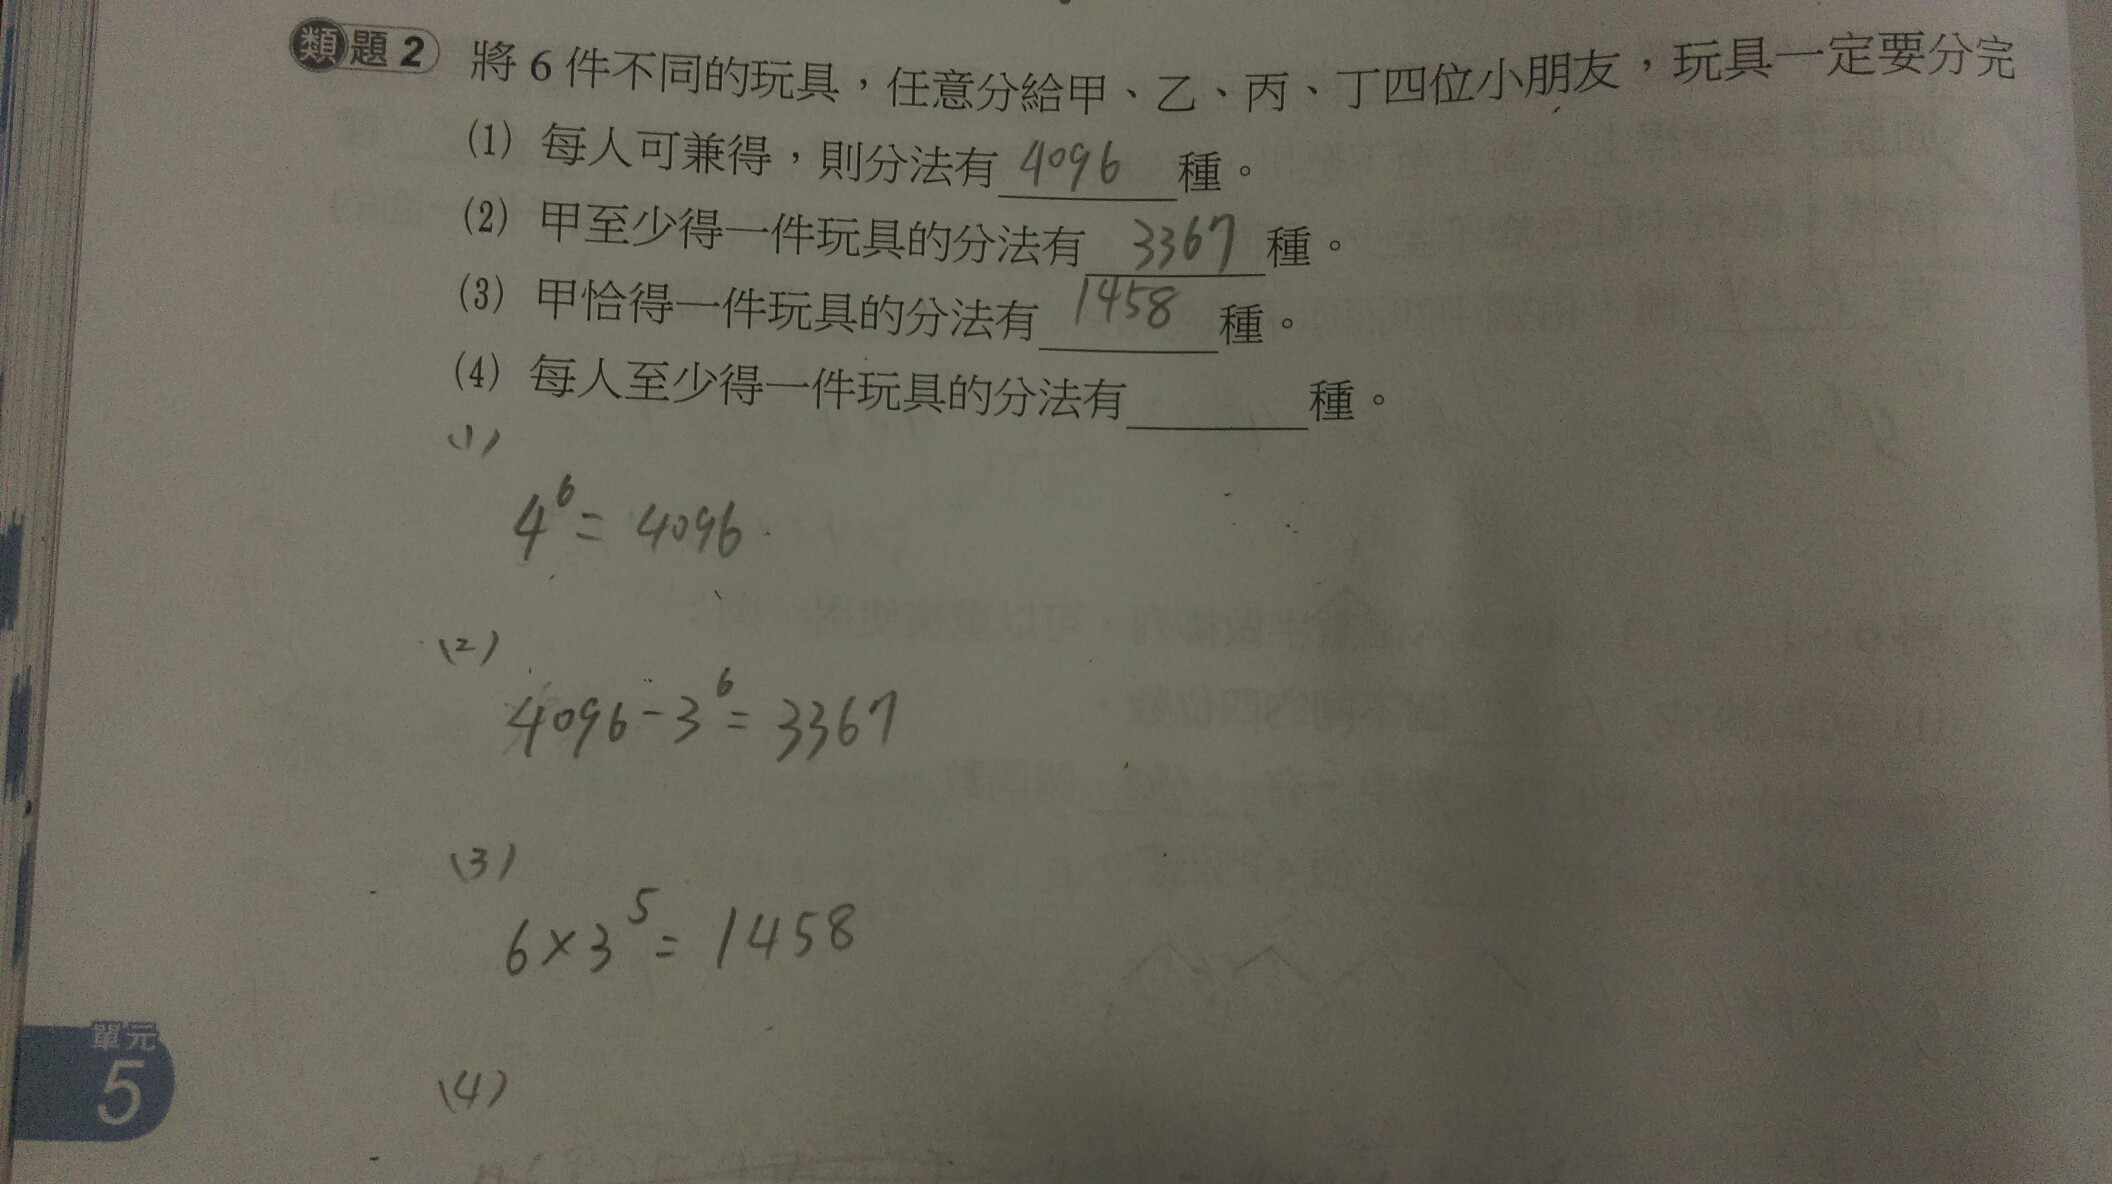 類題2 將6件不同的玩具，任意分給甲、乙、丙、丁四位小朋友，玩具一定要分完
(1) 每人可兼得，則分法有 4096 種。
(2) 甲至少得一件玩具的分法有 3367 種。
(3) 甲恰得一件玩具的分法有 1458 種。
(4) 每人至少得一件玩具的分法有______種。
(1)
4⁶ = 4096
(2)
4096 - 3⁶ = 3367
(3)
6 × 3⁵ = 1458
(4)
單元
5